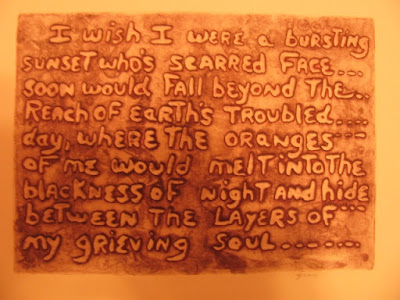 I wish I were a bursting
sunset who's scarred face....
soon would fall beyond the..
Reach of earth's troubled....
day, where the oranges----
of me would melt into the
blackness of night and hide
between the layers of...
my grieving soul.......